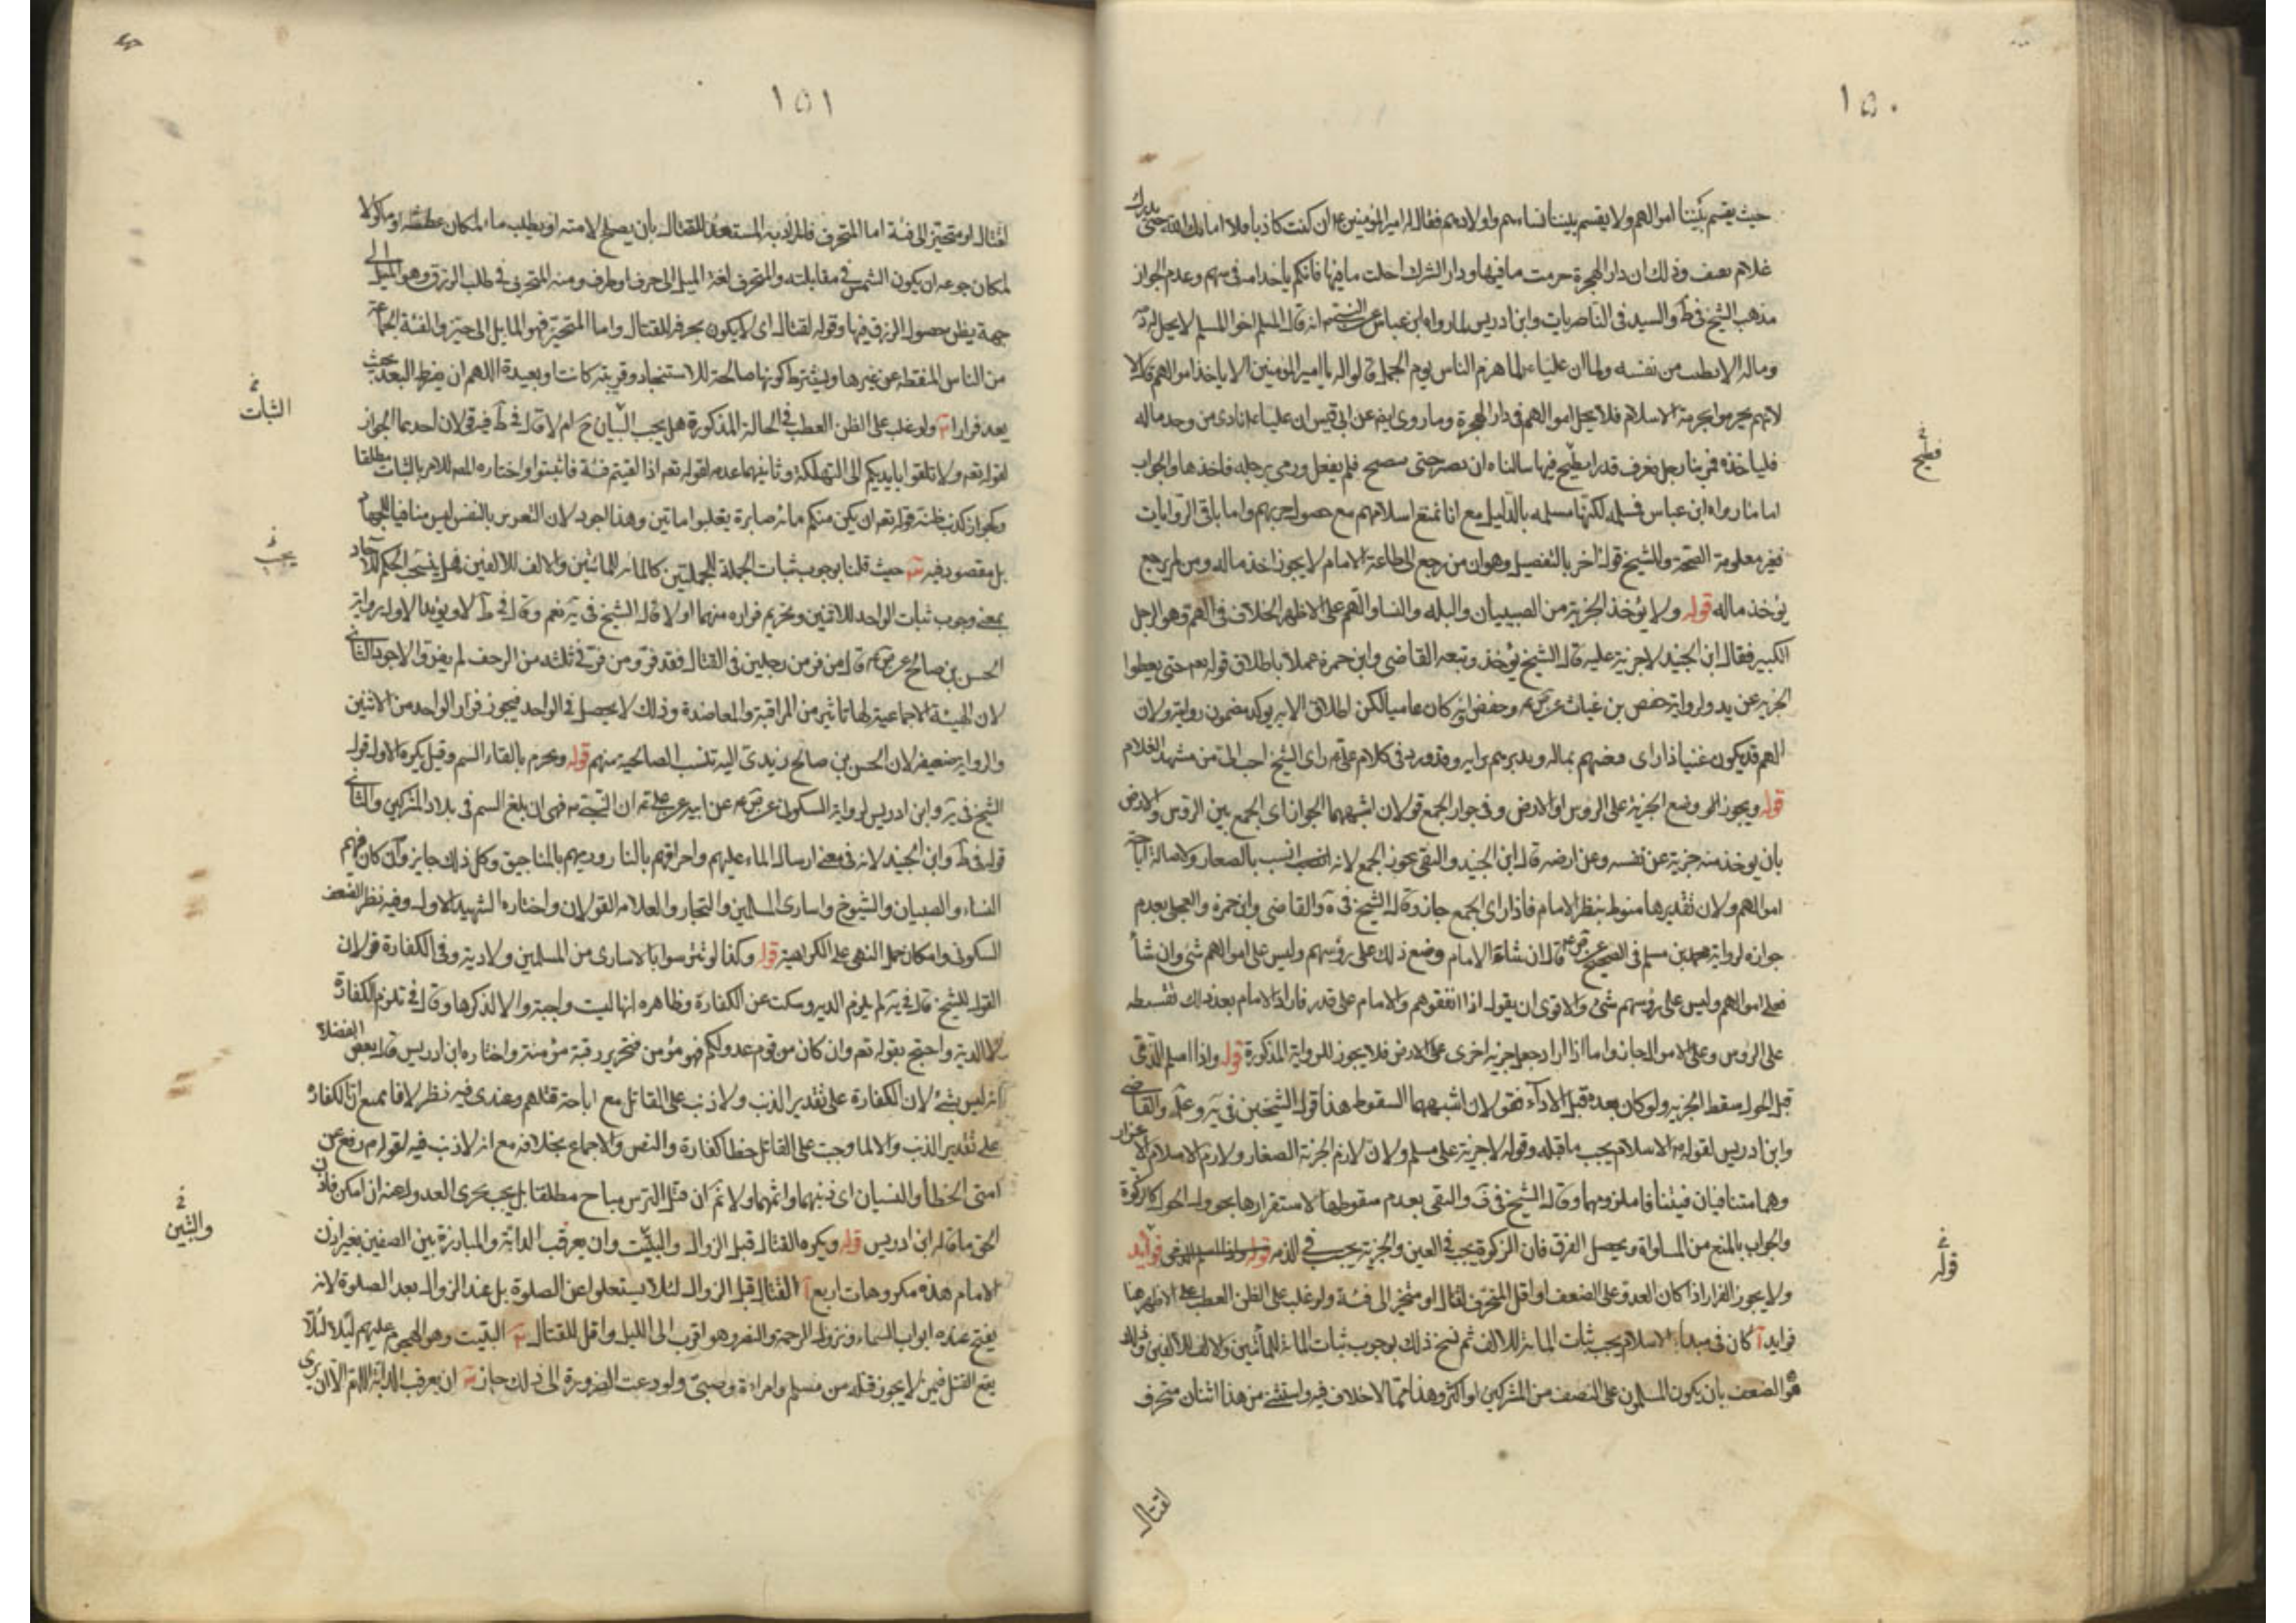 ١٥٠
حيث يقسم بيننا اموالهم ولا يقسم بيننا نساءهم واولادهم فقال له امير المؤمنين ع ان كنت كاذبا فلا اماتك الله حتى تدرك
غلام ثقيف وذلك ان دار الهجرة حرمت ما فيها ودار الشرك احلت ما فيها فايكم ياخذ امه في سهمه وعدم الجواز
مذهب الشيخ في ط والسيد في الناصريات وابن ادريس لما رواه ابن عباس عن النبي ص انه قال المسلم اخو المسلم لا يحل له دمه
وماله الا بطيب من نفسه ولما ان عليا ع لما هزم الناس يوم الجمل قالوا له يا امير المؤمنين الا ناخذ اموالهم قال لا
لانهم تحرموا بحرمة الاسلام فلا يحل اموالهم في دار الهجرة وما روى ايضا عن ابي قيس ان عليا ع نادى من وجد ماله
فلياخذه فمر بنا رجل فعرف قدرا نطبخ فيها سالناه ان يصبر حتى ينضج فلم يفعل ورمى برجله فاخذها والجواب
اما ما رواه ابن عباس فمسلم لكنها مسلمة بالدليل مع انا نمنع اسلامهم مع حصول حربهم واما باقي الروايات
فغير معلومة الصحة وللشيخ قول اخر بالتفصيل وهو ان من رجع الى طاعة الامام لا يجوز اخذ ماله ومن لم يرجع
يؤخذ ماله قوله ولا يؤخذ الجزية من الصبيان والبله والنسا والهم على الاظهر الخلاف في الهم وهو الرجل
الكبير فقال ابن الجنيد لا جزية عليه قال الشيخ يؤخذ وتبعه القاضي وابن حمزة عملا باطلاق قوله تعم حتى يعطوا
الجزية عن يد ولرواية حفص بن غياث عن ص ع وحفص وان كان عاميا لكن اطلاق الاية يؤكد مضمون روايته ولان
الهم قد يكون غنيا ذا راى فيعينهم بماله ويدبرهم برايه وقد ورد في كلام علي ع راى الشيخ احب الى من مشهد الغلام
قوله ويجوز وضع الجزية على الرؤس او الارض وفي جواز الجمع قولان اشبههما الجواز اى الجمع بين الرؤس والارض
بان يوخذ منه جزية عن نفسه وعن ارضه قال ابن الجنيد والتقي بجوز الجمع لانه انسب بالصغار ولاصالة اباحة
اموالهم ولان تقديرها منوط بنظر الامام فاذا راى الجمع جاز وقال الشيخ في ية والقاضي وابن حمزة والعجلي بعدم
جوازه لرواية محمد بن مسلم في الصحيح عن ص ع قال ان شاء الامام وضع ذلك على رؤسهم وليس على اموالهم شئ وان شأ
فعلى اموالهم وليس على رؤسهم شئ والاقوى ان يقول اذا اتفقوهم والامام على قدر فاراد الامام بعد ذلك تقسيطه
على الرؤس وعلى الاموال جاز واما اذا اراد جعل جزية اخرى على الارض فلا يجوز للرواية المذكورة قوله واذا اسلم الذمي
قبل الحول سقط الجزية ولو كان بعده قبل الاداء فقولان اشبههما السقوط هذا قول الشيخين في ية والقاضي
وابن ادريس لقوله ص الاسلام يجب ما قبله وقوله لا جزية على مسلم ولان لازم الجزية الصغار ولازم الاسلام الاعزاز
وهما متنافيان فيتنافى ملزوميهما وقال الشيخ في ف والتقي بعدم سقوطها لاستقرارها بحول الحول كالزكوة
والجواب بالمنع من المساواة ويحصل الفرق فان الزكوة يجب في العين والجزية يجب في الذمة فوايد
ولا يجوز الفرار اذا كان العدو على الضعف او اقل الا لمتحرف لقتال او متحيز الى فئة ولو غلب على الظن العطب على الاظهر هنا
فوايد آ كان في مبدأ الاسلام يجب ثبات المائة للالف ثم نسخ ذلك بوجوب ثبات المائة للمأتين والالف للالفين وذلك
هو الضعف بان يكون المسلمون على النصف من المشركين او اكثر وهذا مما لا خلاف فيه واستثنى من هذا اثنان متحرف
لقتال
نطبخ خ
قوله خ
١٥١
لقتال او متحيز الى فئة اما المتحرف فالمراد به المستعد للقتال بان يصلح لامته او يطلب ماء لمكان عطشه او ماكولا
لمكان جوعه او يكون الشمس في مقابلته والتحرف لغة الميل الى حرف او طرف ومنه المتحرف في طلب الرزق وهو الميل الى
جهة يظن حصول الرزق فيها وقوله لقتال اى لا يكون تحرفه الا لقتال واما المتحيز فهو المايل الى حيز والفئة الجماعة
من الناس المنقطعة عن غيرها ويشترط كونها صالحة للاستنجاد قريبة كانت او بعيدة اللهم ان يفرط البعد بحيث
يعد فرارا ب ولو غلب على الظن العطب في الحالة المذكورة هل يجب الثبات ح ام لا قال في ط فيه قولان احدهما الجواز
لقوله تعم ولا تلقوا بايديكم الى التهلكة وثانيهما عدمه لقوله تعم اذا لقيتم فئة فاثبتوا واختاره المص للامر بالثبات مطلقا
ولجواز كذب ظنه قوله تعم ان يكن منكم مائة صابرة يغلبوا ماتين وهذا اجود لان التغرير بالنفس ليس منافيا للجهاد
بل مقصود فيه ج حيث قلنا بوجوب ثبات الجملة للجملتين كالمائة للمائتين والالف للالفين فهل ينسحب الحكم للآحاد
بمعنى وجوب ثبات الواحد للاثنين وتحريم فراره منهما او لا قال الشيخ في ية نعم وقال في ط لا ويؤيد الاول رواية
الحسن بن صالح عن ص ع قال من فر من رجلين في القتال فقد فر ومن فر في ثلثة من الزحف لم يفر والاجود الثاني
لان الهيئة الاجتماعية لها تاثير من المراقبة والمعاضدة وذلك لا يحصل في الواحد فيجوز فرار الواحد من الاثنين
والرواية ضعيفة لان الحسن بن صالح زيدى اليه تنسب الصالحية منهم قوله ويحرم بالقاء السم وقيل يكره الاول قول
الشيخ في ية وابن ادريس لرواية السكوني عن ص ع عن ابيه عن علي ع ان النبي ص نهى ان يلقى السم في بلاد المشركين والثاني
قوله في ط وابن الجنيد لانه في معنى ارسال الماء عليهم واحراقهم بالنار ورميهم بالمناجيق وكل ذلك جايز وان كان فيهم
النساء والصبيان والشيوخ واسارى المسلمين والتجار وللعلامة القولان واختاره الشهيد الاول وفيه نظر لضعف
السكوني وامكان حمل النهي على الكراهية قوله وكذا لو تترسوا بالاسارى من المسلمين ولا دية وفي الكفارة قولان
القول للشيخ قال في ية لم يلزم الدية وسكت عن الكفارة وظاهره انها ليست واجبة والا لذكرها وقال في تلزم الكفارة
لا الدية واحتج بقوله تعم وان كان من قوم عدو لكم فهو مؤمن فتحرير رقبة مؤمنة واختاره ابن ادريس قال بعض الفضلاء
انه ليس بشئ لان الكفارة على تقدير الذنب ولا ذنب على القاتل مع اباحة قتلهم وعندى فيه نظر لانا نمنع ان الكفارة
على تقدير الذنب والا لما وجبت على القاتل خطا كفارة والنص والاجماع بخلافه مع انه لا ذنب فيه لقوله ع رفع عن
امتى الخطأ والنسيان اى ذنبهما واثمهما ولا ثم ان قتل الترس مباح مطلقا بل يجب تحرى العدو لعنه ان امكن فاذن
الحق ما قاله ابن ادريس قوله ويكره القتال قبل الزوال والبيت وان يعرقب الدابة والمبارزة بين الصفين بغير اذن
الامام هذه مكروهات اربع آ القتال قبل الزوال لئلا يستعجلوا عن الصلوة بل عند الزوال بعد الصلوة لانه
يفتح عنده ابواب السماء ونزول الرحمة والنصر وهو اقرب الى الليل واقل للقتال ب التبييت وهو الهجوم عليهم ليلا لئلا
يقع القتل فيمن لا يجوز قتله من مسلم وامراة وصبي ولو دعت الضرورة الى ذلك جاز ج ان يعرقب الدابة اللهم الا ان يرى
الثبات خ
يجب خ
والتبيين خ